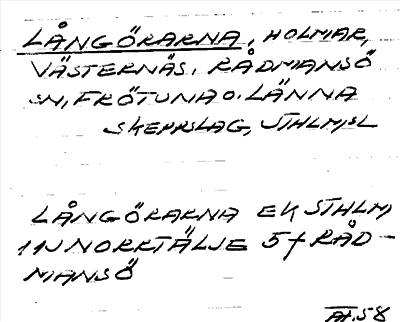 LÅNGÖRARNA, HOLMAR,
VÄSTERNÄS, RÅDMANSÖ
SN, FRÖTUNA O. LÄNNA
SKEPPSLAG, STHLM,SL
LÅNGÖRARNA EK STHLM
11J NORRTÄLJE 5f RÅD-
MANSÖ
AI.58